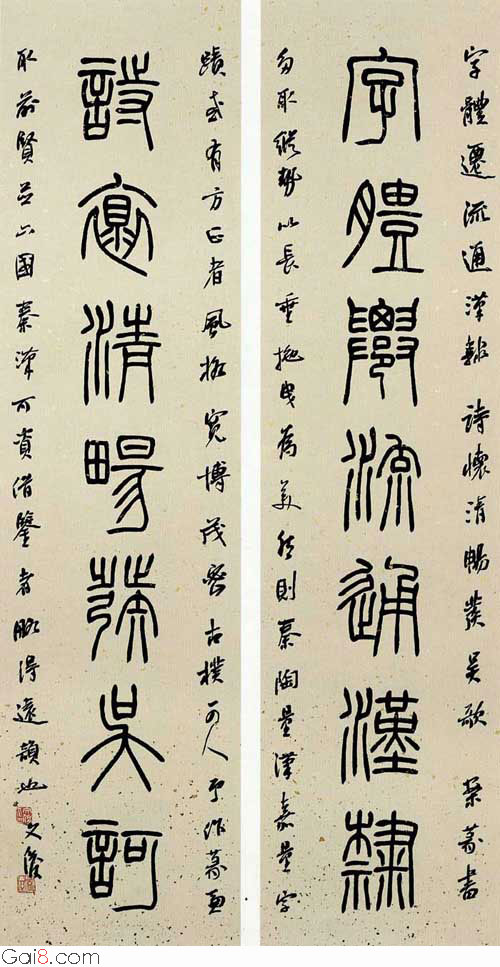 字體遷流通漢隸 詩懷清暢發吳歌 書
字體遷流通漢隸
取縱勢以長垂拖曳為美 然則秦陶量漢嘉量字
蹟或有方正者風格寬博茂密古樸可人 予作篆每
詩懷清暢發吳歌
取前賢並六國秦漢可資借鑒者 得遠韻也 文俊
Gai8.com